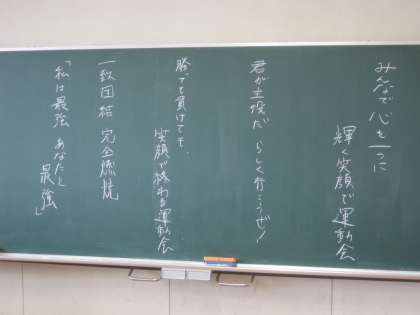 みんなで心を一つに
輝く笑顔で運動会
君が主役だ らしく行こうぜ!
勝っても負けても、
笑顔で終わる運動会
一致団結 完全燃焼
「私は最強 あなたと
最強」